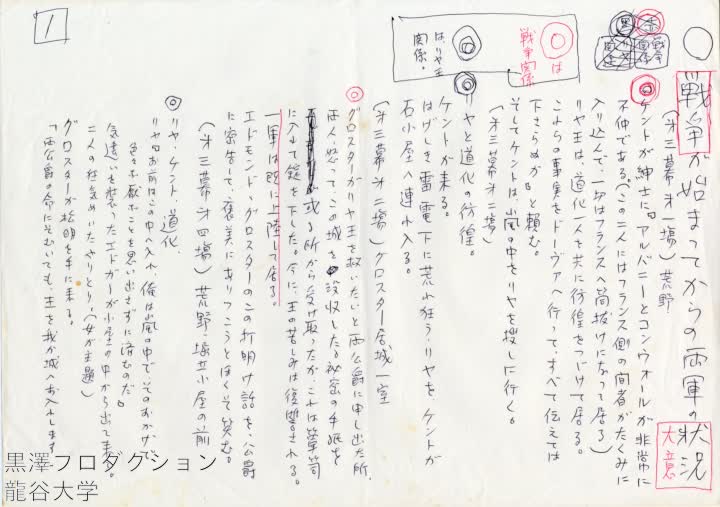 1
○戦争が始まってからの両軍の状況
大意
赤
戦争関係
黒
◎は戦争関係
◎はリヤ王関係。
(第三幕第一場)荒野
◎ケントが紳士に「アルバニーとコンウォールが非常に
不仲である。(この二人にはフランス側の間者がたくみに
入り込んで、一切はフランスへ筒抜けになって居る)
リヤ王は、道化一人を共に彷徨をつづけて居る。
これらの事実をドーヴァへ行って、すべて伝えては
下さらぬか」と頼む。
そしてケントは、嵐の中をリヤを捜しに行く。
(第三幕第二場)
◎リヤと道化の彷徨。
ケントが来る。
はげしき雷電下に荒れ狂う、リヤを、ケントが
石小屋へ連れ入る。
(第三幕第三場)グロスター居城一室
◎グロスターがリヤ王を救いたいと両公爵に申し出た所、
両人怒って、この城を没収した。秘密の手紙を
或る所から受け取ったが、これは箪笥
に入れて錠を下した。今に、王の苦しみは復讐される。
一軍は既に上陸して居る。
エドモンド、グロスターのこの打明け話を、公爵
に密告して、褒美にありつこうとほくそ笑む。
(第三幕第四場)荒野、掘立小屋の前
◎リヤ、ケント、道化、
リヤ「お前はこの中へ入れ、俺は嵐の中で、そのおかげで
色々と厭なことを思い出さずに済むのだ」
気違いを装ったエドガーが小屋の中から出て来る。
二人の狂気めいたやりとり(女が主題)
グロスターが松明を手に来る。
「両公爵の命にそむいても、王を我が城へお入れします
黒澤プロダクション
龍谷大学